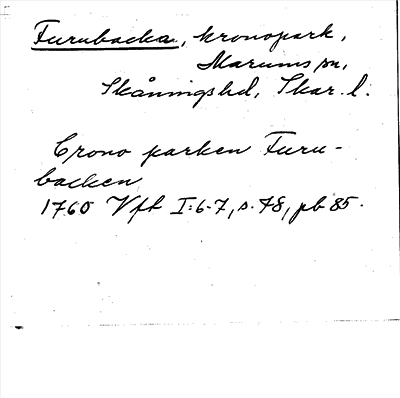 Furubacka, kronopark,
Marums sn,
Skånings hd, Skar. l.
Crono parken Furu-
backen
1760 Vft I:6-7, s. 78, pb 85.